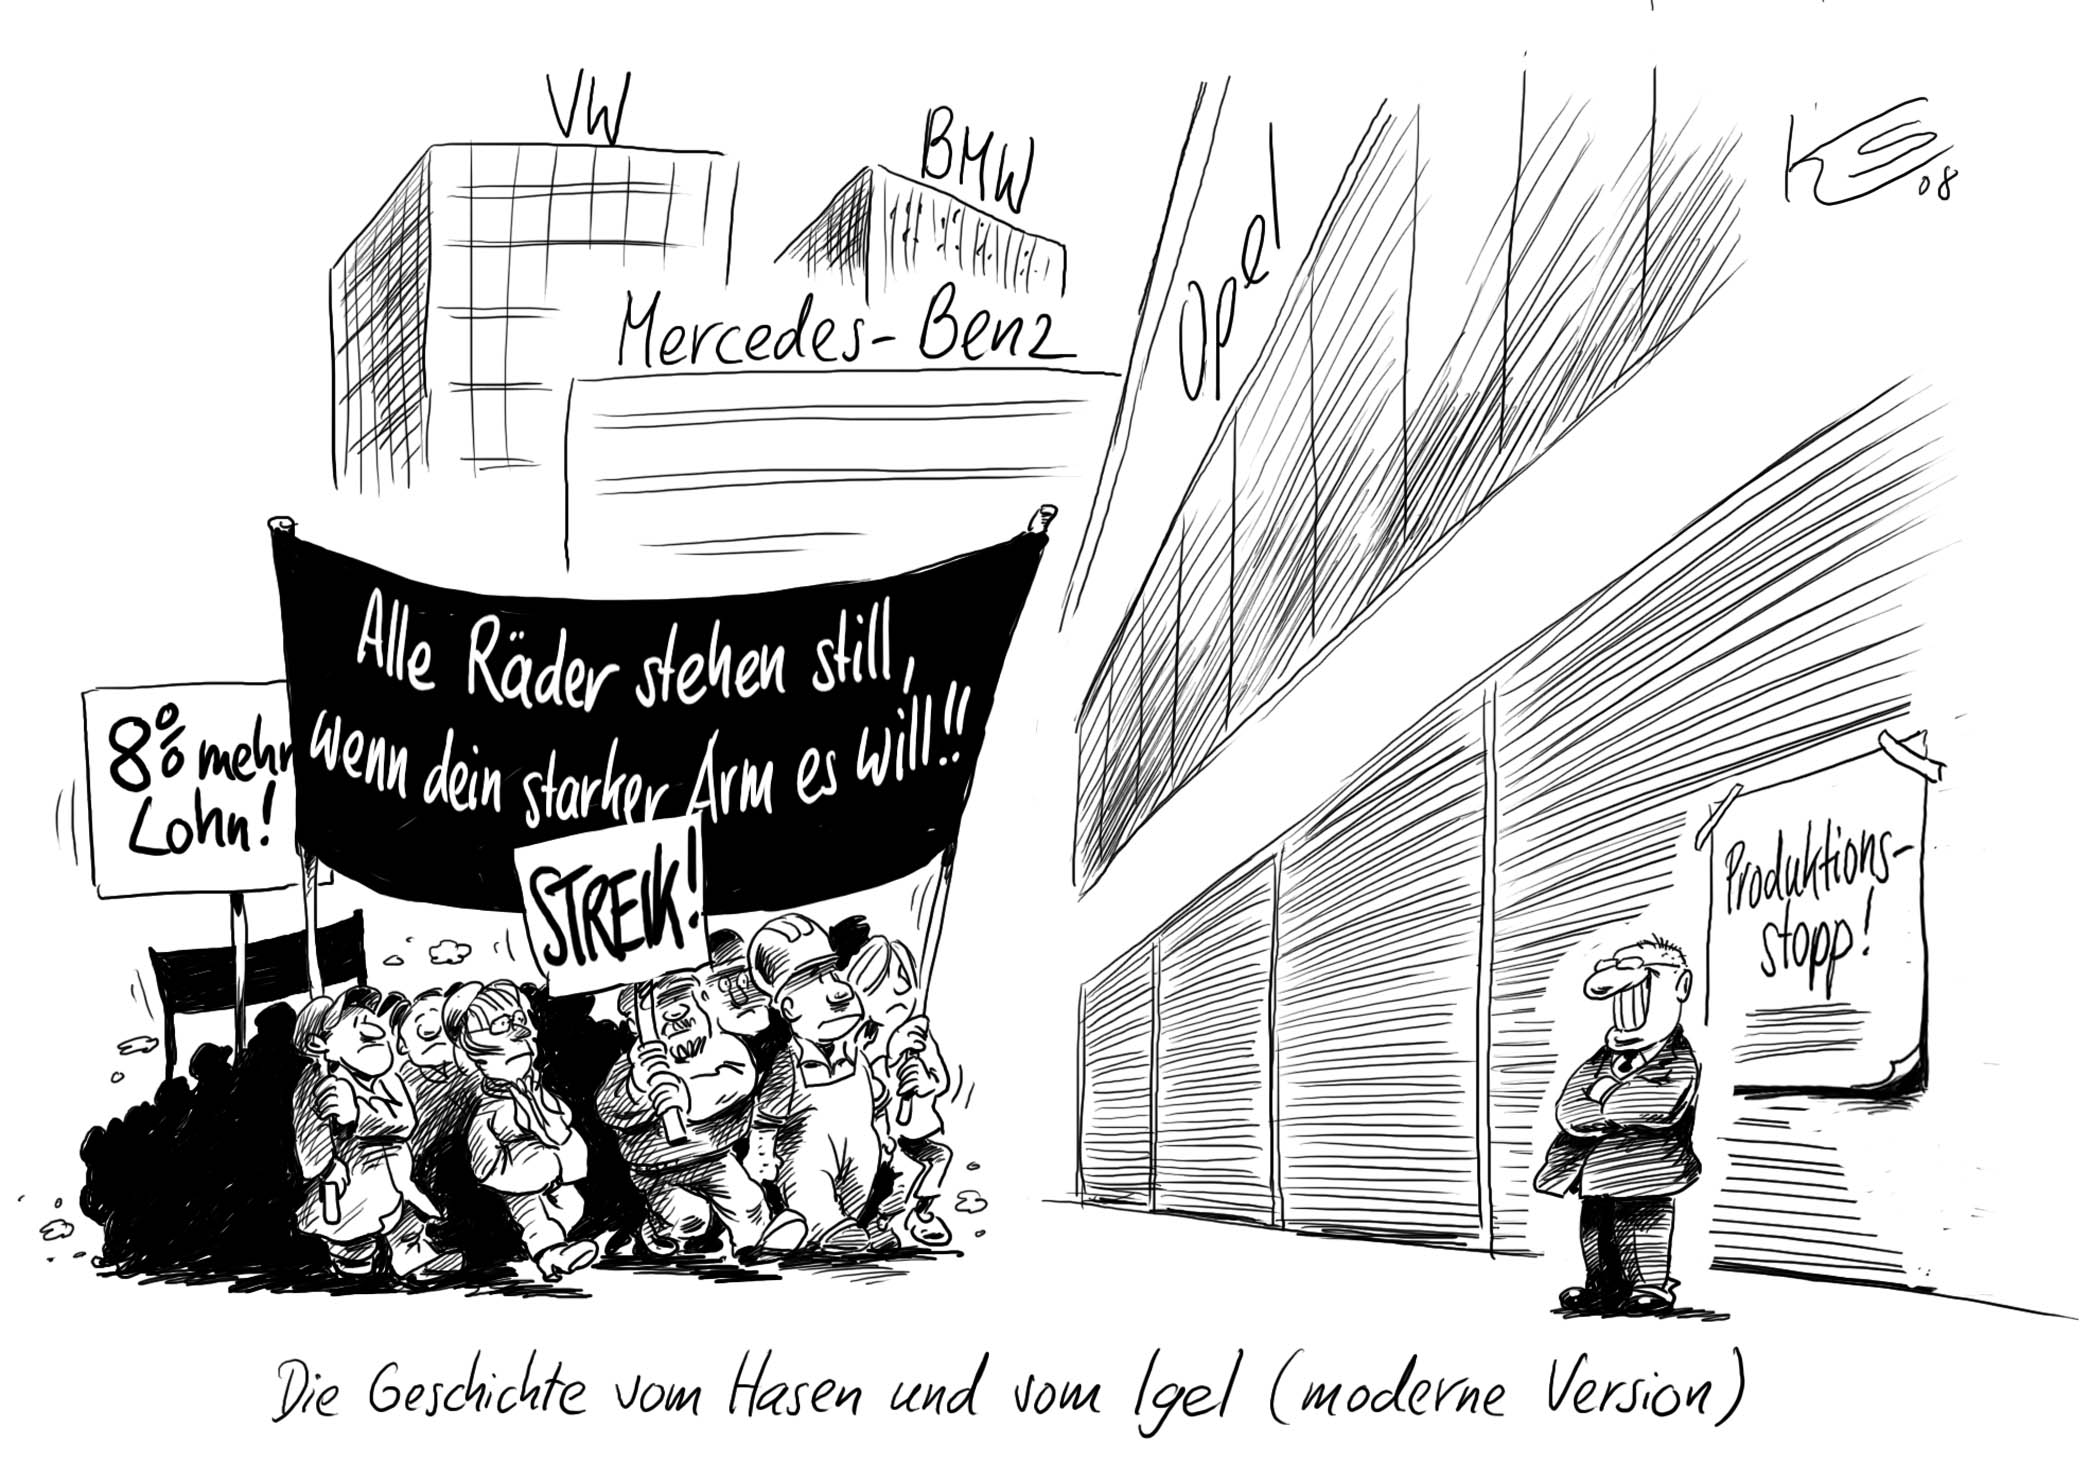 VW
BMW
Mercedes-Benz
Opel
08
Alle Räder stehen still,
wenn dein starker Arm es will!!
8% mehr
Lohn!
STREIK!
Produktions-
stopp!
Die Geschichte vom Hasen und vom Igel (moderne Version)